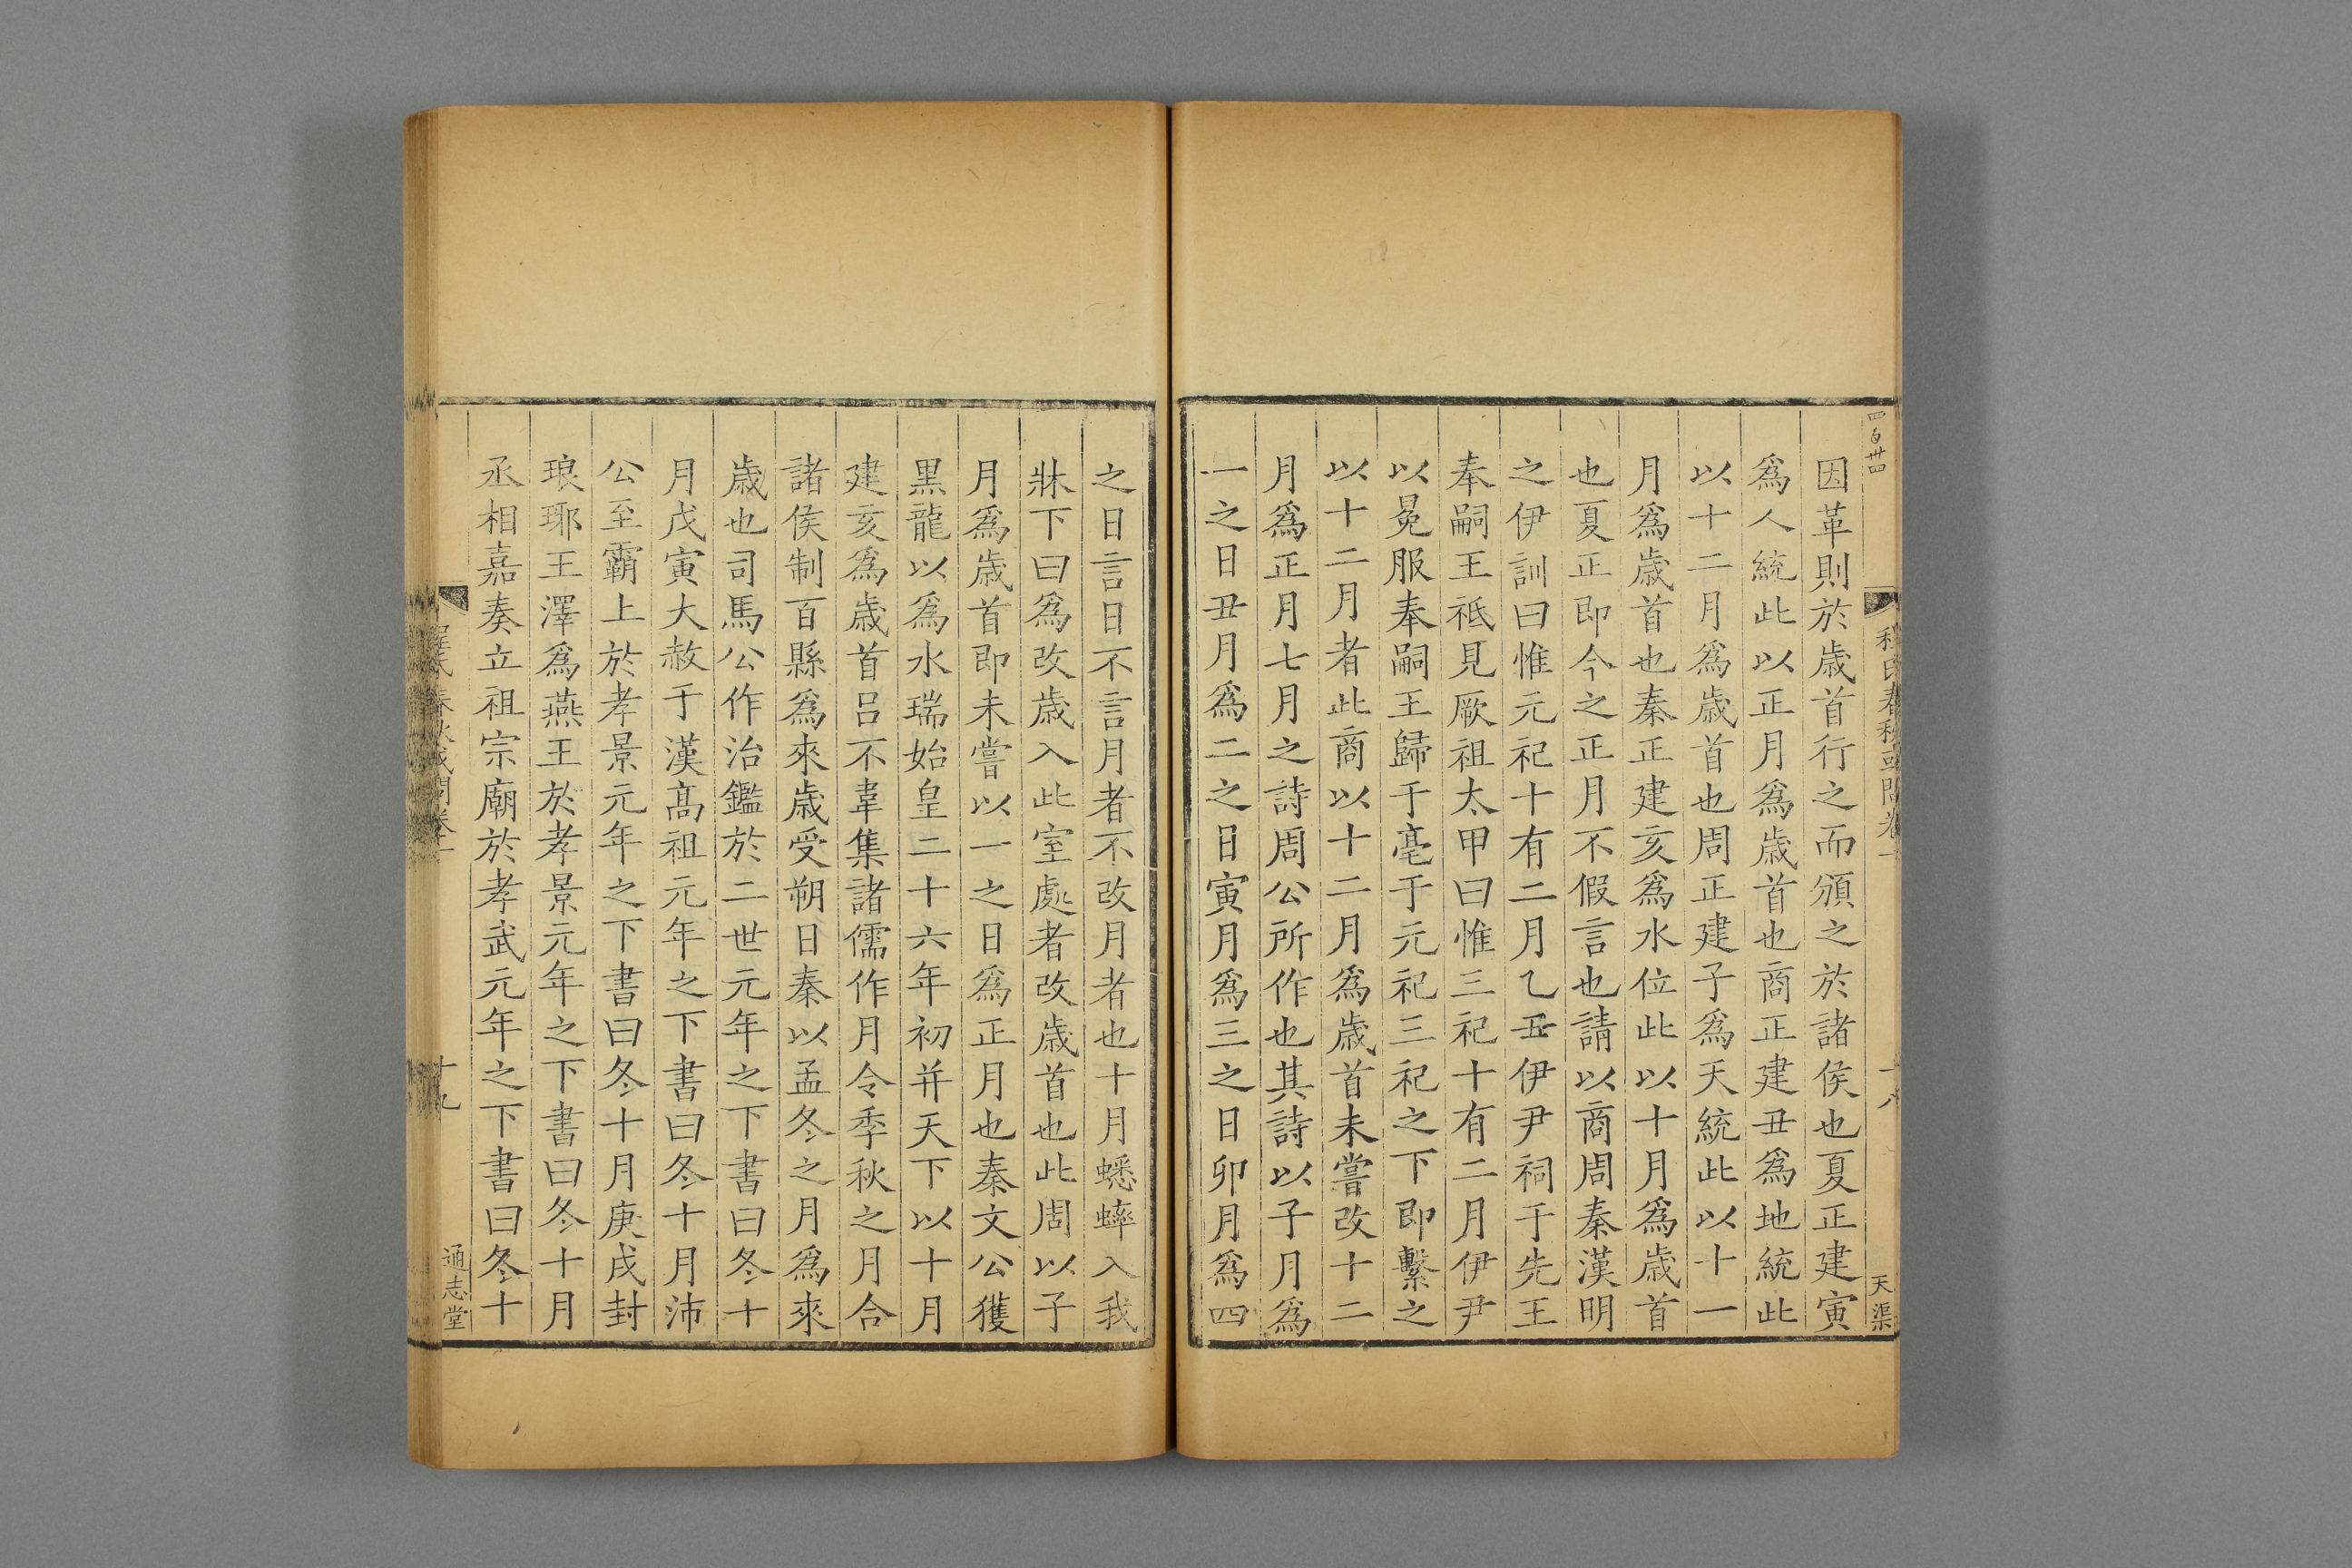 四百卅四
程氏春秋或問卷一
十八
天渠
因革則於歲首行之而頒之於諸侯也夏正建寅
爲人統此以正月爲歲首也商正建丑爲地統此
以十二月爲歲首也周正建子爲天統此以十一
月爲歲首也秦正建亥爲水位此以十月爲歲首
也夏正即今之正月不假言也請以商周秦漢明
之伊訓曰惟元祀十有二月乙丑伊尹祠于先王
奉嗣王祗見厥祖太甲曰惟三祀十有二月伊尹
以冕服奉嗣王歸于亳于元祀三祀之下即繫之
以十二月者此商以十二月爲歲首未嘗改十二
月爲正月七月之詩周公所作也其詩以子月爲
一之日丑月爲二之日寅月爲三之日卯月爲四
之日言日不言月者不改月者也十月蟋蟀入我
牀下曰爲改歲入此室處者改歲首也此周以子
月爲歲首即未嘗以一之日爲正月也秦文公獲
黑龍以爲水瑞始皇二十六年初并天下以十月
建亥爲歲首呂不韋集諸儒作月令季秋之月合
諸侯制百縣爲來歲受朔日秦以孟冬之月爲來
歲也司馬公作治鑑於二世元年之下書曰冬十
月戊寅大赦于漢髙祖元年之下書曰冬十月沛
公至霸上於孝景元年之下書曰冬十月庚戌封
琅琊王澤爲燕王於孝景元年之下書曰冬十月
丞相嘉奏立祖宗廟於孝武元年之下書曰冬十
程氏春秋或問卷一
十九
通志堂